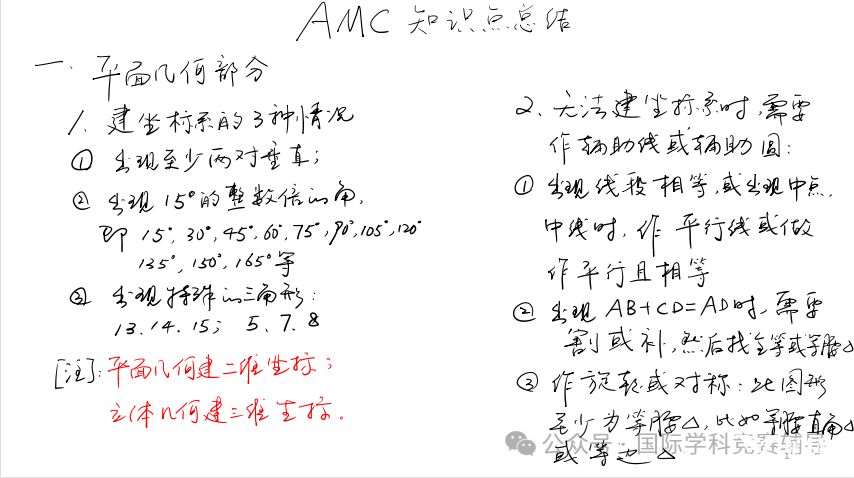 AMC 知识点总结
一、平面几何部分
1、建坐标系的3种情况
① 出现至少两对垂直；
② 出现15°的整数倍的角，
即 15°, 30°, 45°, 60°, 75°, 90°, 105°, 120°
135°, 150°, 165°等
③ 出现特殊的三角形：
13、14、15； 5、7、8
[注]：平面几何建二维坐标；
立体几何建三维坐标。
2、无法建坐标系时，需要
作辅助线或辅助圆：
① 出现线段相等，或出现中点，
中线时，作平行线或做
作平行且相等
② 出现 AB+CD=AD时，需要
割或补，然后找全等或等腰△
③ 作旋转或对称：此图形
至少为等腰△，比如等腰直角△
或等边△
公众号·国际学科竞赛辅导